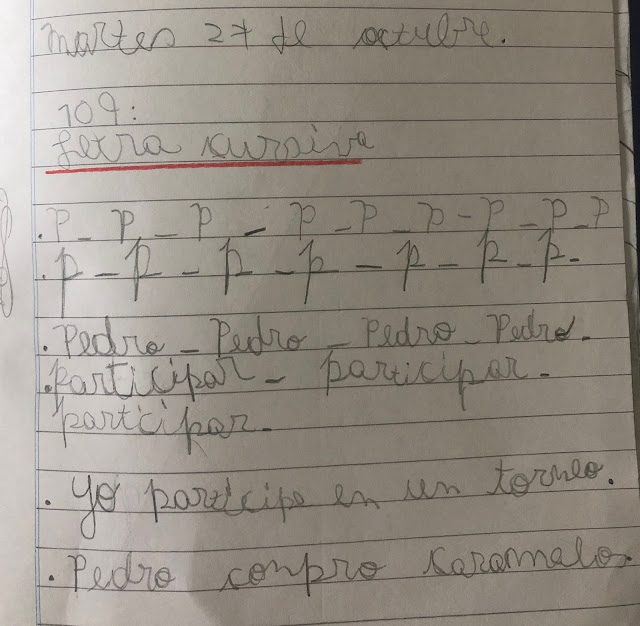 martes 27 de octubre.
109:
Letra cursiva
. P - P - P - P - P - P - P - P - P
. p - p - p - p - p - p - p -
. Pedro - Pedro - Pedro - Pedro -
. participar - participar -
participar -
. Yo participe en un torneo.
. Pedro conpro caramelo.